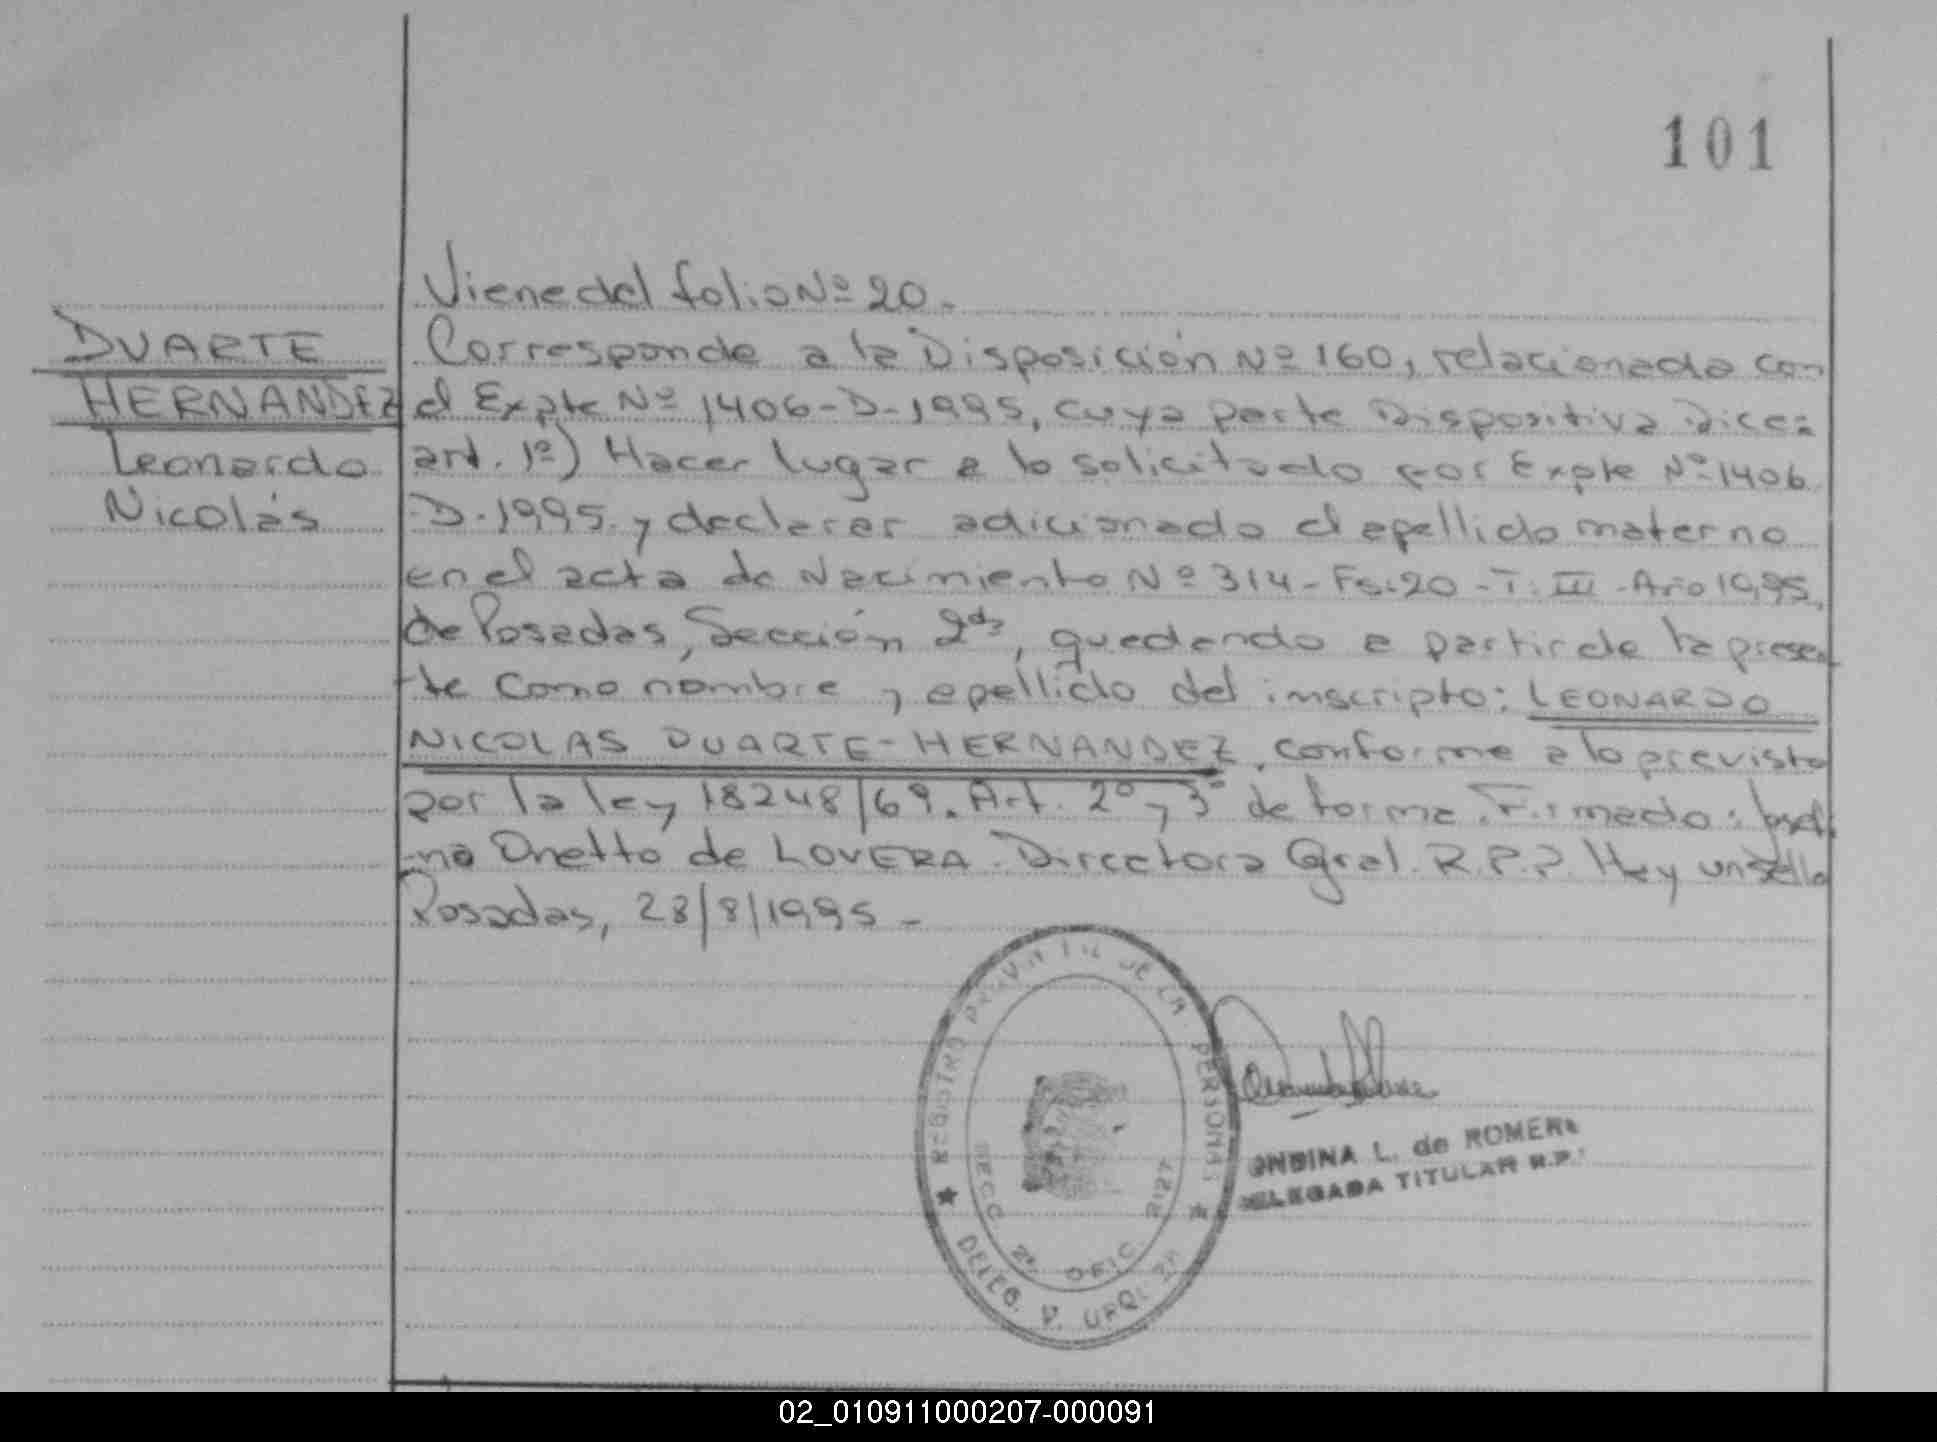 101
Viene del folio Nº 20.-
DUARTE
HERNANDEZ
Leonardo
Nicolás
Corresponde a la Disposición Nº 160, relacionada con
el Expte Nº 1406-D-1995, cuya parte Dispositiva Dice:
art. 1º) Hacer lugar a lo solicitado por Expte Nº 1406
-D-1995. y declarar adicionado el apellido materno
en el acta de Nacimiento Nº 314 - Fo: 20 - T: III - Año 1995,
de Posadas, Sección 2da, quedando a partir de la presen-
-te como nombre y apellido del inscripto: LEONARDO
NICOLAS DUARTE-HERNANDEZ, conforme a lo previsto
por la ley 18248/69. Art. 2º y 3º de forma. Firmado: Josefi-
-na Onetto de LOVERA. Directora Gral. R.P.P. Hay un sello
Posadas, 28/8/1995 -
REGISTRO PROVINCIAL DE LAS PERSONAS
SECC. 2ª. OFIC.
DELEG. V. URQUIZA
ONDINA L. de ROMERO
DELEGADA TITULAR R.P.
02_010911000207-000091